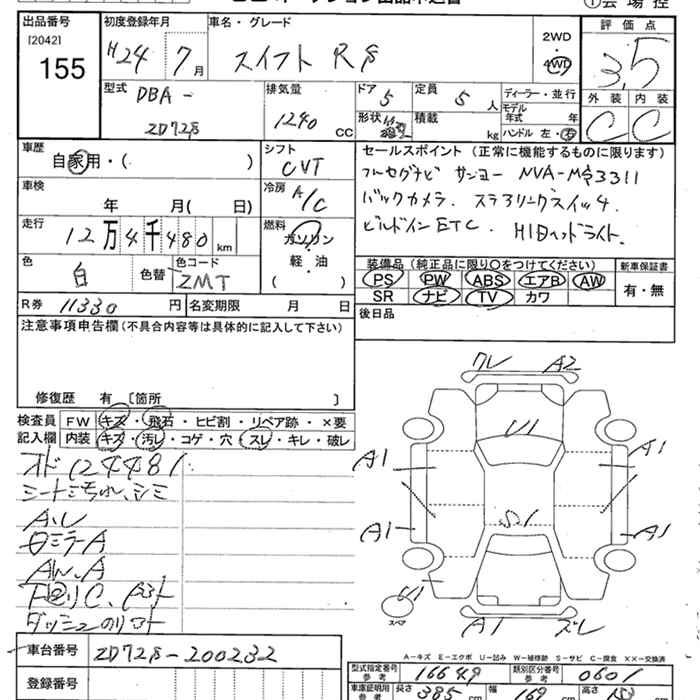 ①会場控
出品番号
[2042]
155
初度登録年月
H24 7月
車名・グレード
スイフト RS
2WD
・
4WD
評価点
3.5
外装 内装
C C
型式
DBA-
ZD72S
排気量
1240 CC
ドア 5
形状
定員 5 人
積載 kg
ディーラー・並行
モデル
年式 年
ハンドル 左・右
車歴
自家用・( )
シフト
CVT
セールスポイント(正常に機能するものに限ります)
フルセグナビ サンヨー NVA-MS3311
バックカメラ. ステアリングスイッチ.
ビルドインETC. HIDヘッドライト.
車検
年 月( 日)
冷房
A/C
走行
12万4千480km
燃料
ガソリン
軽・油
( )
色
白
色替
色コード
ZMT
装備品(純正品に限り○をつけてください)
PS PW ABS エアB AW
SR ナビ TV カワ
新車保証書
有・無
R券 11330 円
名変期限 月 日
後日品
注意事項申告欄(不具合内容等は具体的に記入して下さい)
修復歴 有 [箇所 ]
検査員
記入欄
FW キズ・飛石・ヒビ割・リペア跡・×要
内装 キズ・汚レ・コゲ・穴・スレ・キレ・破レ
オド124481
シートヨゴレ、シミ
A.U
ロミラーA
AW.A
下回りC、
ワレ A2
U1
A1 A1
S1
A1 A1
U1
スペア
A1 ズレ
A-キズ E-エクボ U-凹み W-補修跡 S-サビ C-腐食 XX-交換済
車台番号 ZD72S-200232
登録番号
型式指定番号
参考
16649
類別区分番号
参考
0601
車庫証明用
参考
長さ 385 cm
幅 169 cm
高さ